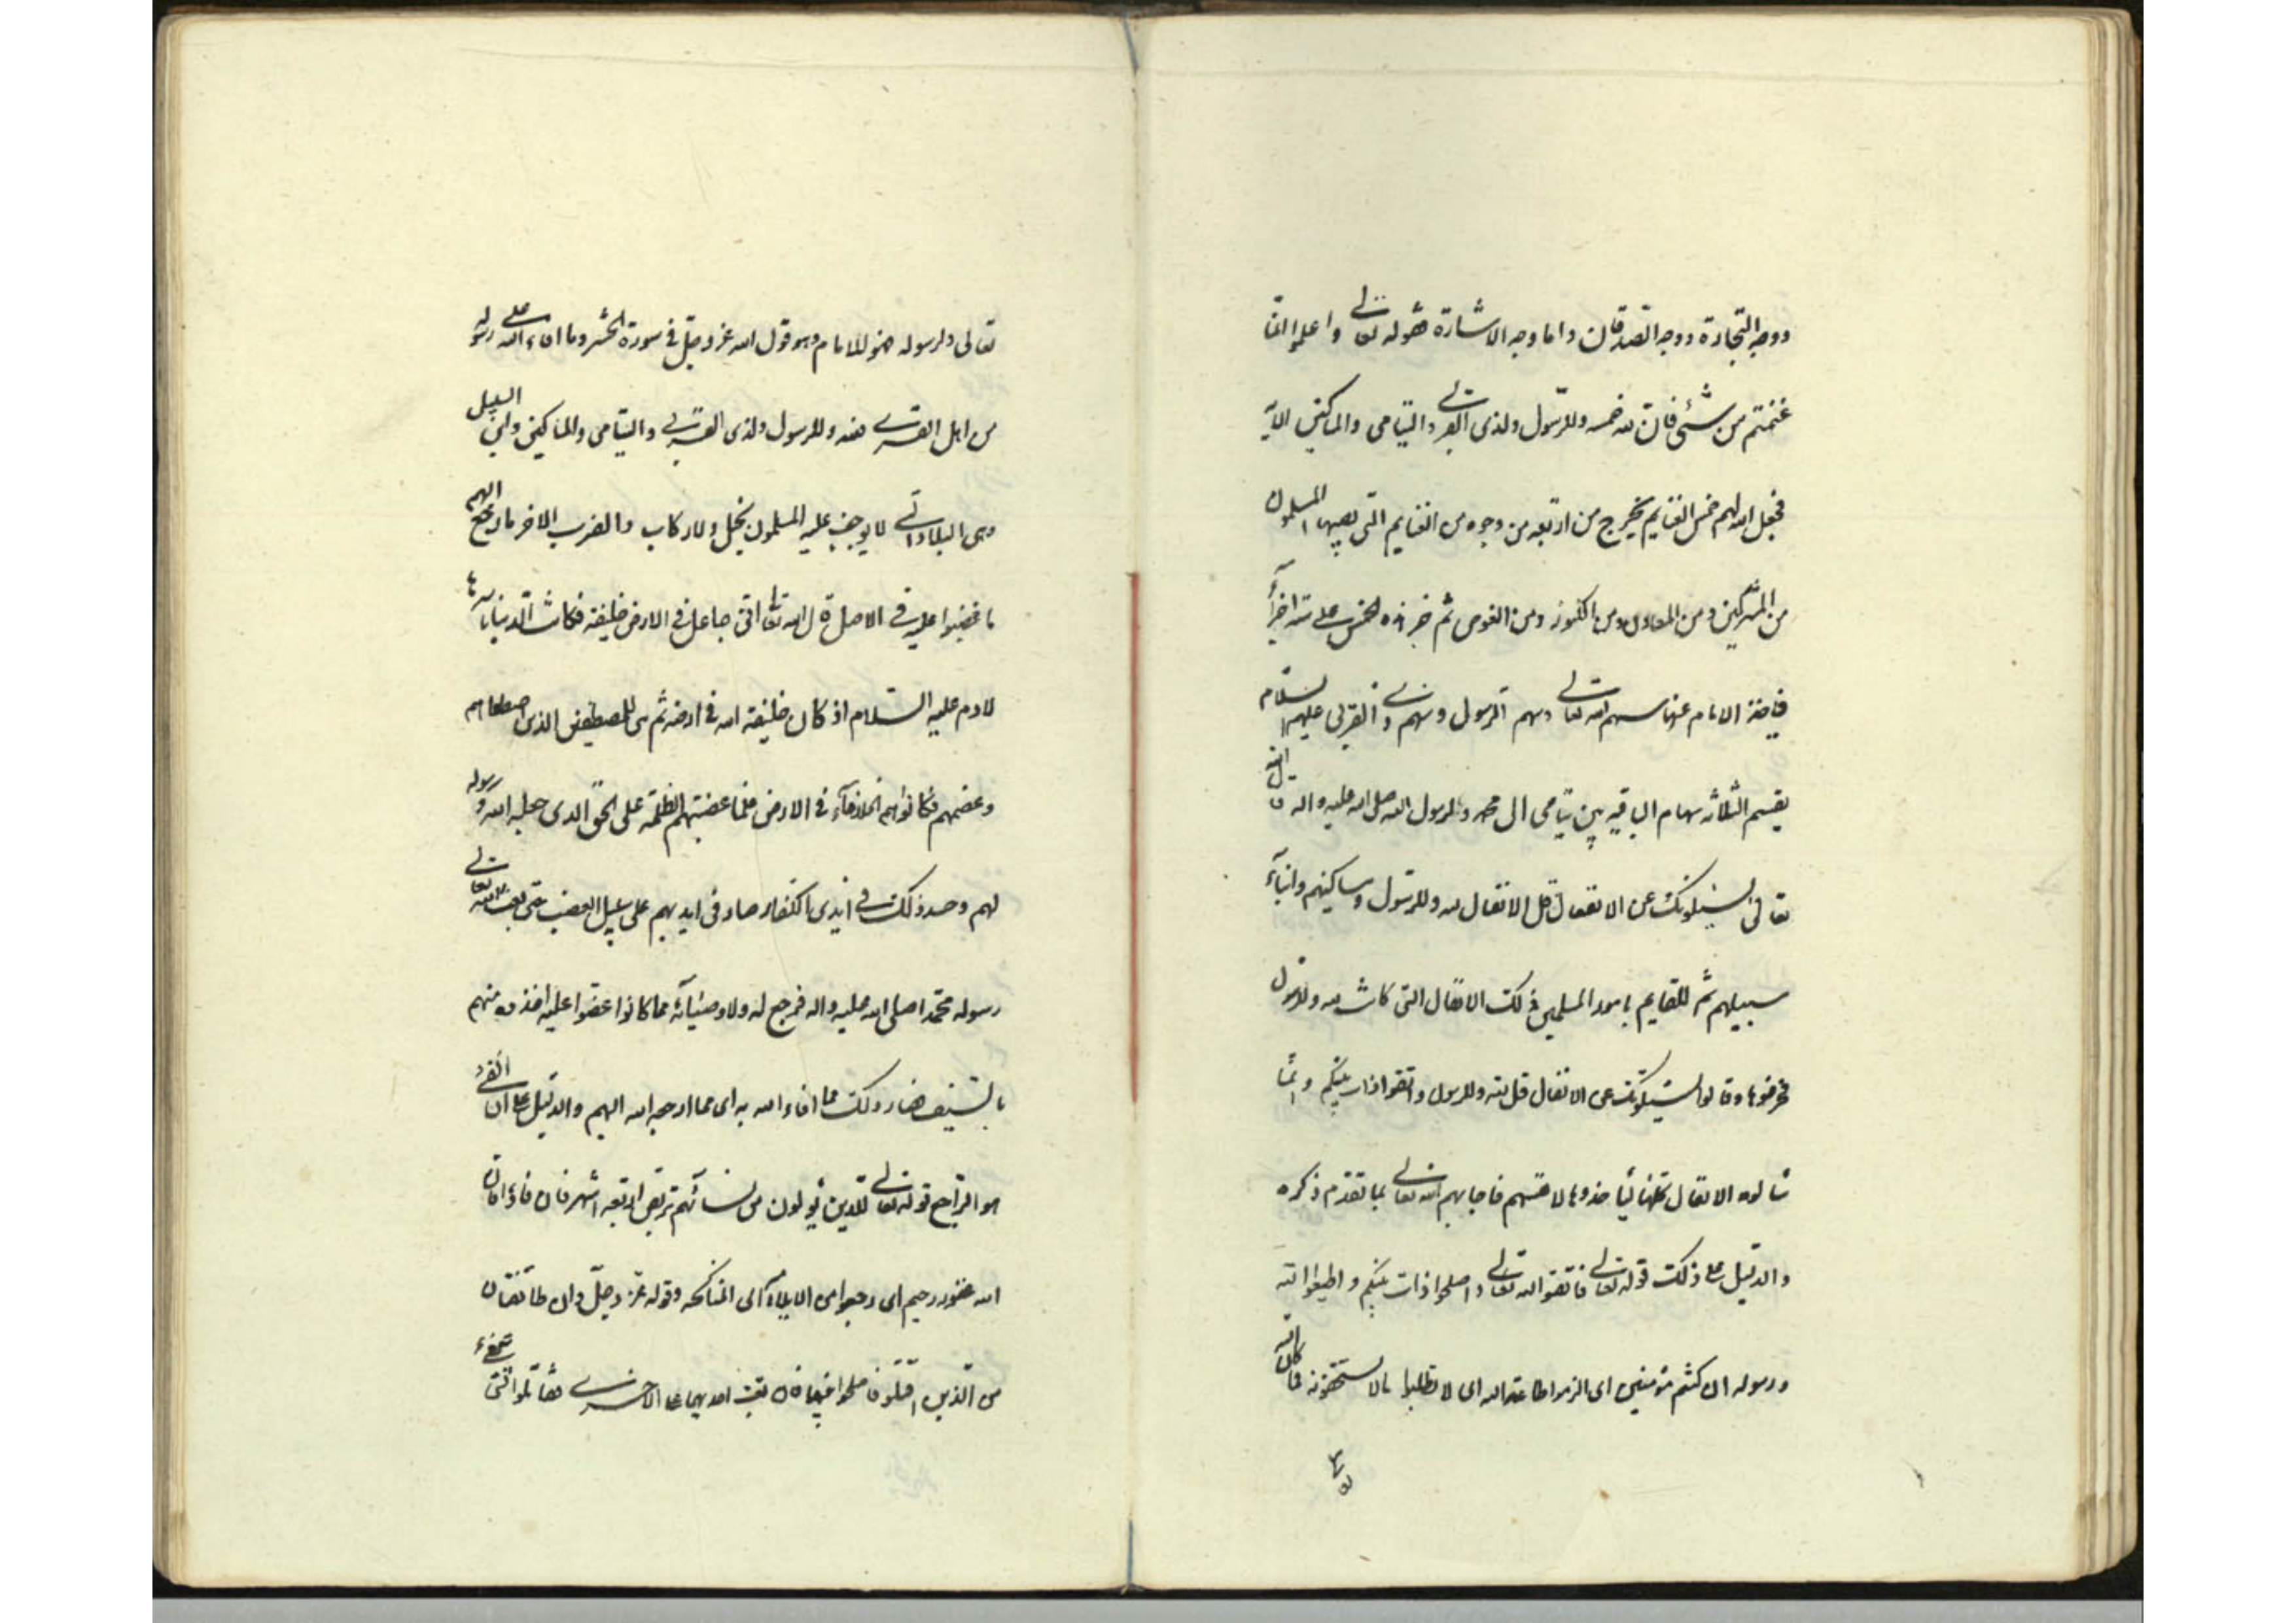 ووجه التجارة ووجه الصدقات واما وجه الاشارة فقوله تعالى واعلموا انما
غنمتم من شئ فان لله خمسه وللرسول ولذى القربى واليتامى والمساكين الآية
فجعل الله لهم خمس الغنايم يخرج من اربعه من وجوه من الغنايم التى يصيبها المسلمون
من المشركين ومن المعادن ومن الكنوز ومن الغوص ثم جزء هذه الخمس على ستة اجزاء
فياخذ الامام عنها سهم الله تعالى وسهم الرسول وسهم ذى القربى عليهم السلام
يقسم الثلاثه سهام الباقيه بين يتامى ال محمد ولرسول الله صلى الله عليه واله قال الله
تعالى يسئلونك عن الانفال قل الانفال لله وللرسول ومساكينهم وابناء
سبيلهم ثم للقايم بامور المسلمين ذلك الانفال التى كانت لله وللرسول
فحرفوها وقالوا يسئلونك عن الانفال قل لله وللرسول واتقوا ذات بينكم وانما
سالوه الانفال كلها لياخذوها لانفسهم فاجابهم الله تعالى بما تقدم ذكره
والدليل على ذلك قوله تعالى فاتقوا الله تعالى واصلحوا ذات بينكم واطيعوا الله
ورسوله ان كنتم مؤمنين اى الزموا طاعة الله اى لا تطلبوا ما لا تستحقونه فما كان لله
تعالى ولرسوله فهو للامام وهو قول الله عز وجل فى سورة الحشر وما افاء الله على رسوله
من اهل القرى فلله وللرسول ولذى القربى واليتامى والمساكين وابن السبيل
وهى البلاد التى لا يوجف عليه المسلمون بخيل ولا ركاب والضرب الاخر ما رجع اليهم
ما غضبوا عليه فى الاصل قال الله تعالى انى جاعل فى الارض خليفة فكانت الدنيا باسرها
لادم عليه السلام اذ كان خليفة الله فى ارضه ثم هى للمصطفين الذين اصطفاهم
وعصمهم فكانوا هم الخلفاء فى الارض فلما غصبتهم الظلمة على الحق الذى جعله الله ورسوله
لهم وحصل ذلك فى ايدى الكفار صار فى ايديهم على سبيل الغصب حتى بعث الله تعالى
رسوله محمدا صلى الله عليه واله فرجع له ولاوصيائه مما كانوا غصبوا عليه اخذوه منهم
بالسيف فصار ذلك مما افاء الله به اى مما ارجعه الله اليهم والدليل على ان الفئ
هو الراجع قوله تعالى للذين يؤلون من نسائهم تربص اربعة اشهر فان فاؤا فان
الله غفور رحيم اى رجعوا من الايلاء الى المناكحه وقوله عز وجل وان طائفتان
من الذين اقتلوا فاصلحوا بينهما فان بغت احديهما على الاخرى فقاتلوا التى تبغى